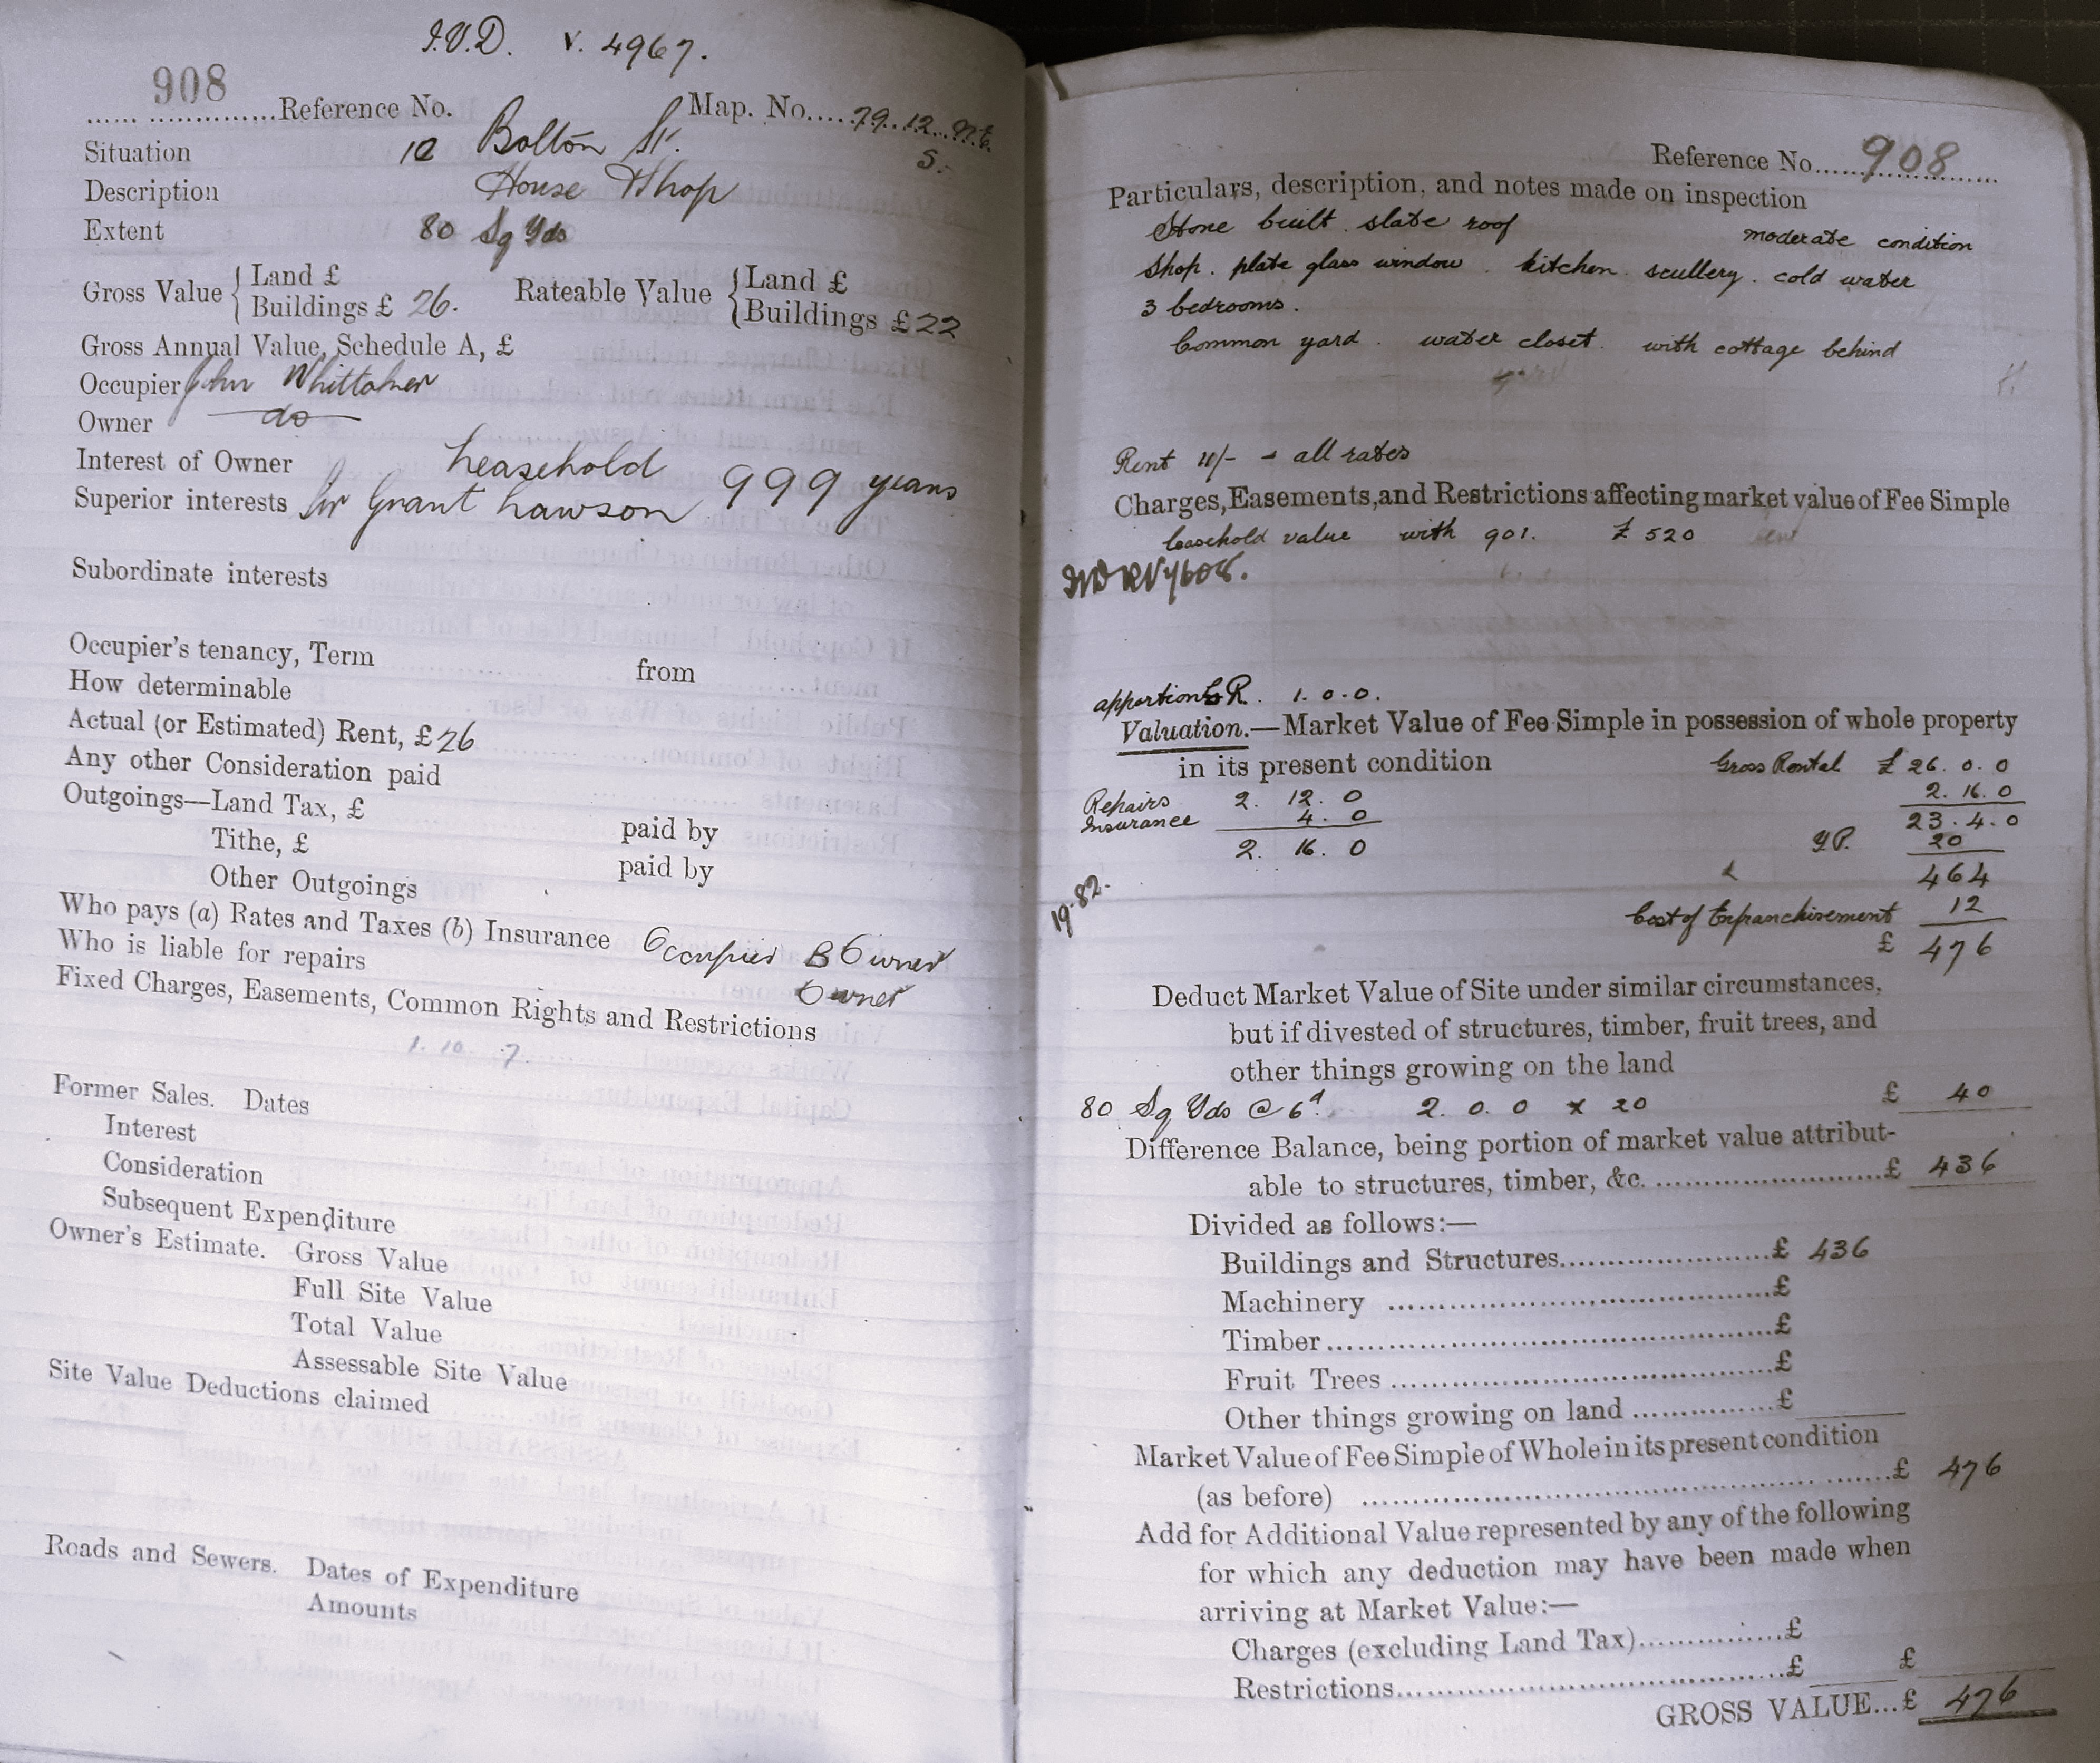 I.V.D. v. 4967.
908
Reference No. Map. No. 79.12. N.E.
S.-
Situation 12 Bolton St.
Description House & Shop
Extent 80 Sq Yds
Gross Value { Land £
Buildings £ 26. Rateable Value { Land £
Buildings £22
Gross Annual Value, Schedule A, £
Occupier John Whittaker
Owner do
Interest of Owner Leasehold 999 years
Superior interests Sir Grant Lawson
Subordinate interests
Occupier's tenancy, Term from
How determinable
Actual (or Estimated) Rent, £26
Any other Consideration paid
Outgoings—Land Tax, £ paid by
Tithe, £ paid by
Other Outgoings
Who pays (a) Rates and Taxes (b) Insurance Occupier B Owner
Who is liable for repairs Owner
Fixed Charges, Easements, Common Rights and Restrictions
1. 10. 7
Former Sales. Dates
Interest
Consideration
Subsequent Expenditure
Owner's Estimate. Gross Value
Full Site Value
Total Value
Assessable Site Value
Site Value Deductions claimed
Roads and Sewers. Dates of Expenditure
Amounts
Reference No. 908
Particulars, description, and notes made on inspection
Stone built. slate roof moderate condition
Shop. plate glass window. kitchen. scullery. cold water
3 bedrooms.
Common yard. water closet. with cottage behind
Rent 11/- - all rates
Charges, Easements, and Restrictions affecting market value of Fee Simple
Leasehold value with 901. £ 520
apportiond G.R. 1. 0. 0.
Valuation.—Market Value of Fee Simple in possession of whole property
in its present condition Gross Rental £ 26. 0. 0
Repairs 2. 12. 0 2. 16. 0
Insurance 4. 0 23. 4. 0
2. 16. 0 Y.P. 20
19.82. 464
Cost of Enfranchisement 12
£ 476
Deduct Market Value of Site under similar circumstances,
but if divested of structures, timber, fruit trees, and
other things growing on the land
80 Sq Yds @ 6d. 2. 0. 0 x 20 £ 40
Difference Balance, being portion of market value attribut-
able to structures, timber, &c. £ 436
Divided as follows:—
Buildings and Structures £ 436
Machinery £
Timber £
Fruit Trees £
Other things growing on land £
Market Value of Fee Simple of Whole in its present condition
(as before) £ 476
Add for Additional Value represented by any of the following
for which any deduction may have been made when
arriving at Market Value:—
Charges (excluding Land Tax) £
Restrictions £ £
GROSS VALUE...£ 476